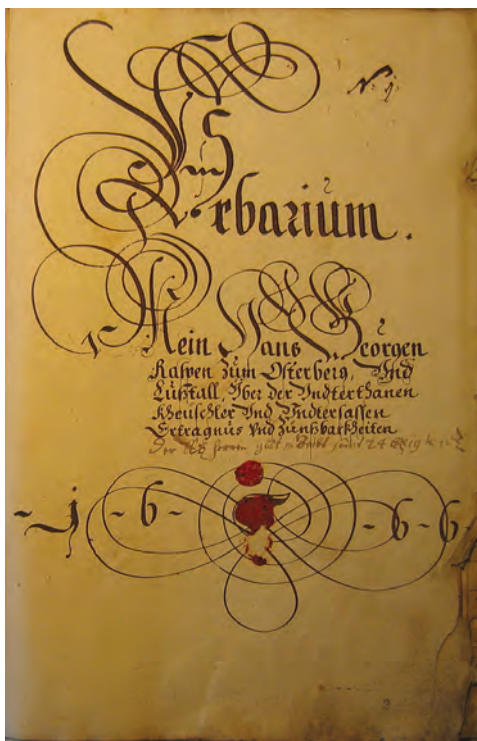 N. 1.
Vrbarium.
Mein Hans Georgen
Kaspen Zum Osterberg, Vnd
Lußtall, Vber der Vndterthanen
Kheuschler Vnd Vndtersassen
Ertragnus Vnd Zünßbarkheiten
Der
-1-6- -6-6-